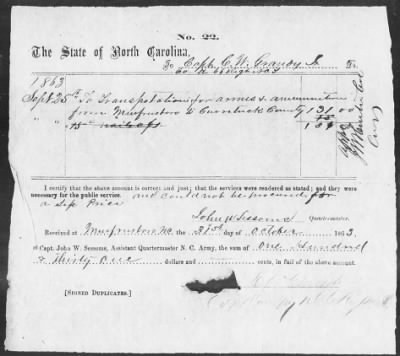 No. 22.
The State of North Carolina,
To Capt C. W. Grandy Jr Dr.
Co
1863
Sept 25th To Transpotation for armes & ammunition
" " from Murfresboro to Currituck County 131.00
15
I certify that the above account is correct and just; that the services were rendered as stated; and they were
necessary for the public service. and could not be procured for
a less Price
John W Sessoms Quartermaster.
Received at Murfresboro NC the 31st day of October 1863
of Capt. John W. Sessoms, Assistant Quartermaster N. C. Army, the sum of One Hundred
& Thirty One dollars and cents, in full of the above account.
[SIGNED DUPLICATES.]